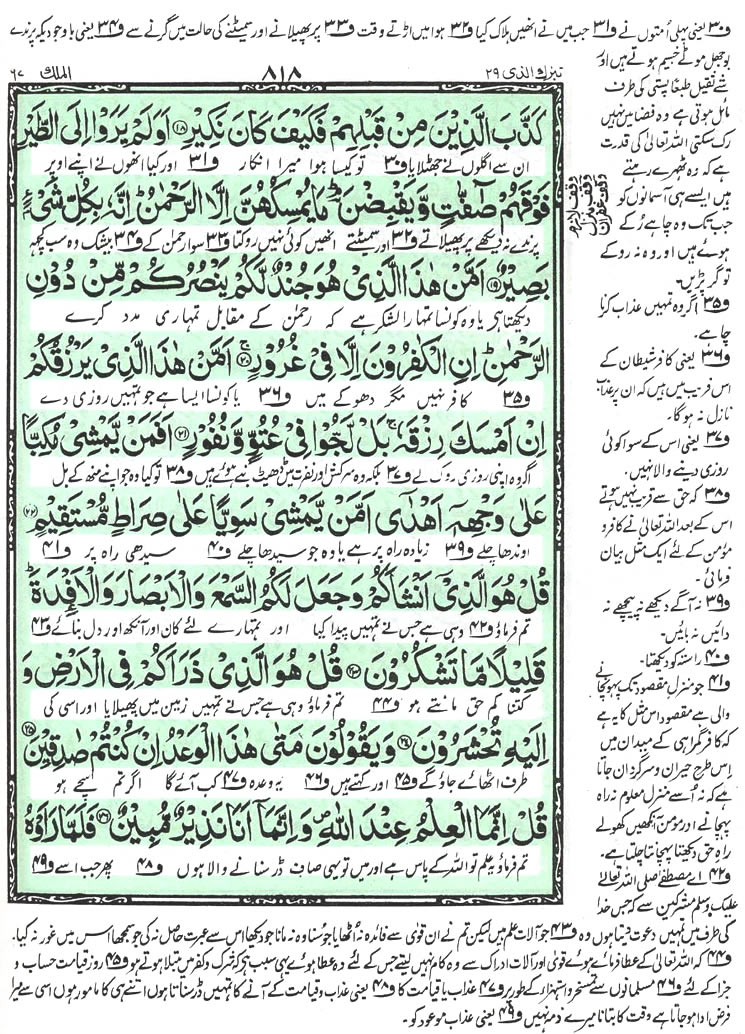 ف۳۰ یعنی پہلی اُمتوں نے ف۳۱ جب میں نے انھیں ہلاک کیا ف۳۲ ہوا میں اڑتے وقت ف۳۳ پر پھیلانے اور سمیٹنے کی حالت میں گرنے سے ف۳۴ یعنی باوجودیکہ پرندے
تبٰرک الذی ۲۹
۸۱۸
الملک ۶۷
كَذَّبَ الَّذِیْنَ مِنْ قَبْلِهِمْ فَكَیْفَ كَانَ نَكِیْرِ ﴿۱۸﴾ اَوَلَمْ یَرَوْا اِلَى الطَّیْرِ
ان سے اگلوں نے جھٹلایا ف۳۰ تو کیسا ہوا میرا انکار ف۳۱ اور کیا انھوں نے اپنے اوپر
فَوْقَهُمْ صٰٓفّٰتٍ وَّ یَقْبِضْنَ ؔۘ مَا یُمْسِكُهُنَّ اِلَّا الرَّحْمٰنُ ؕ اِنَّهٗ بِكُلِّ شَیْءٍۭ
پرندے نہ دیکھے پر پھیلاتے ف۳۲ اور سمیٹتے انھیں کوئی نہیں روکتا ف۳۳ سوا رحمٰن کے ف۳۴ بیشک وہ سب کچھ
بَصِیْرٌ ﴿۱۹﴾ اَمَّنْ هٰذَا الَّذِیْ هُوَ جُنْدٌ لَّكُمْ یَنْصُرُكُمْ مِّنْ دُوْنِ
دیکھتا ہے یا وہ کونسا تمہارا لشکر ہے کہ رحمٰن کے مقابل تمہاری مدد کرے
الرَّحْمٰنِ ؕ اِنِ الْكٰفِرُوْنَ اِلَّا فِیْ غُرُوْرٍ ﴿۲۰﴾ اَمَّنْ هٰذَا الَّذِیْ یَرْزُقُكُمْ
ف۳۵ کافر نہیں مگر دھوکے میں ف۳۶ یا کونسا ایسا ہے جو تمہیں روزی دے
اِنْ اَمْسَكَ رِزْقَهٗ ۚ بَلْ لَّجُّوْا فِیْ عُتُوٍّ وَّ نُفُوْرٍ ﴿۲۱﴾ اَفَمَنْ یَّمْشِیْ مُكِبًّا
اگر وہ اپنی روزی روک لے ف۳۷ بلکہ وہ سرکش اور نفرت میں ڈھیٹ بنے ہوئے ہیں ف۳۸ تو کیا وہ جو اپنے منھ کے بل
عَلٰى وَجْهِهٖۤ اَهْدٰۤى اَمَّنْ یَّمْشِیْ سَوِیًّا عَلٰى صِرَاطٍ مُّسْتَقِیْمٍ ﴿۲۲﴾
اوندھا چلے ف۳۹ زیادہ راہ پر ہے یا وہ جو سیدھا چلے ف۴۰ سیدھی راہ پر ف۴۱
قُلْ هُوَ الَّذِیْۤ اَنْشَاَكُمْ وَ جَعَلَ لَكُمُ السَّمْعَ وَ الْاَبْصَارَ وَ الْاَفْـِٕدَةَ ؕ
تم فرماؤ ف۴۲ وہی ہے جس نے تمہیں پیدا کیا اور تمہارے لئے کان اور آنکھ اور دل بنائے ف۴۳
قَلِیْلًا مَّا تَشْكُرُوْنَ ﴿۲۳﴾ قُلْ هُوَ الَّذِیْ ذَرَاَكُمْ فِی الْاَرْضِ وَ
کتنا کم حق مانتے ہو ف۴۴ تم فرماؤ وہی ہے جس نے تمہیں زمین میں پھیلایا اور اسی کی
اِلَیْهِ تُحْشَرُوْنَ ﴿۲۴﴾ وَ یَقُوْلُوْنَ مَتٰى هٰذَا الْوَعْدُ اِنْ كُنْتُمْ صٰدِقِیْنَ ﴿۲۵﴾
طرف اٹھائے جاؤ گے ف۴۵ اور کہتے ہیں ف۴۶ یہ وعدہ ف۴۷ کب آئے گا اگر تم سچے ہو
قُلْ اِنَّمَا الْعِلْمُ عِنْدَ اللّٰهِ ۪ وَ اِنَّمَاۤ اَنَا نَذِیْرٌ مُّبِیْنٌ ﴿۲۶﴾ فَلَمَّا رَاَوْهُ
تم فرماؤ یہ علم تو اللہ کے پاس ہے اور میں تو یہی صاف ڈر سنانے والا ہوں ف۴۸ پھر جب اسے ف۴۹
بوجھل موٹے جسیم ہوتے ہیں اور
شے ثقیل طبعًا پستی کی طرف
مائل ہوتی ہے وہ فضا میں نہیں
رک سکتی اللہ تعالیٰ کی قدرت
ہے کہ وہ ٹھہرے رہتے
ہیں ایسے ہی آسمانوں کو
جب تک وہ چاہے رُکے
ہوئے ہیں اور وہ نہ روکے
تو گر پڑیں۔
ف۳۵ اگر وہ تمہیں عذاب کرنا
چاہے۔
ف۳۶ یعنی کافر شیطان کے
اس فریب میں ہیں کہ ان پر عذاب
نازل نہ ہوگا۔
ف۳۷ یعنی اس کے سوا کوئی
روزی دینے والا نہیں۔
ف۳۸ کہ حق سے قریب نہیں ہوتے
اس کے بعد اللہ تعالیٰ نے کافر و
مؤمن کے لئے ایک مثل بیان
فرمائی۔
ف۳۹ نہ آگے دیکھے نہ پیچھے نہ
دائیں نہ بائیں۔
ف۴۰ راستہ کو دیکھتا۔
ف۴۱ جو منزل مقصود تک پہونچانے
والی ہے مقصود اس مثل کا یہ ہے
کہ کافر گمراہی کے میدان میں
اس طرح حیران و سرگرداں جاتا
ہے کہ نہ اُسے منزل معلوم نہ راہ
پہچانے اور مومن آنکھیں کھولے
راہِ حق دیکھتا پہچانتا چلتا ہے۔
ف۴۲ اے مصطفےٰ صلی اللہ تعالےٰ
علیک وسلم مشرکین سے کہ جس خدا
کی طرف میں تمہیں دعوت دیتا ہوں وہ ف۴۳ جو آلات علم ہیں لیکن تم نے ان قویٰ سے فائدہ نہ اُٹھایا جو سُنا وہ نہ مانا جو دیکھا اس سے عبرت حاصل نہ کی جو سمجھا اس میں غور نہ کیا۔
ف۴۴ کہ اللہ تعالیٰ کے عطا فرمائے ہوئے قویٰ اور آلات ادراک سے وہ کام نہیں لیتے جس کے لئے وہ عطا ہوئے یہی سبب ہے کہ شرک و کفر میں مبتلا ہوتے ہو ف۴۵ روز قیامت حساب و
جزا کے لئے ف۴۶ مسلمانوں سے تمسخر و استہزاء کے طور پر ف۴۷ عذاب یا قیامت کا ف۴۸ یعنی عذاب و قیامت کے آنے کا تمہیں ڈر سناتا ہوں اتنے ہی کا مامور ہوں اسی سے میرا
فرض ادا ہو جاتا ہے وقت کا بتانا میرے ذمہ نہیں ف۴۹ یعنی عذاب موعود کو۔